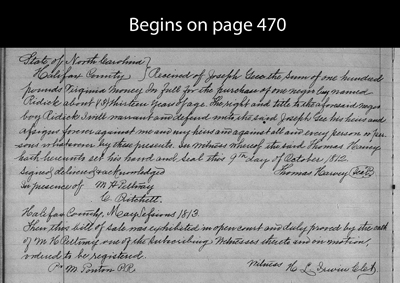 Begins on page 470
State of North Carolina }
Halifax County } Received of Joseph Gee the Sum of one hundred
pounds Virginia Money In full for the purchase of one negro boy named
Ridick about (13) thirteen years of age. The right and title to the aforesaid negro
boy Ridick I will warrant and defend unto the said Joseph Gee his heirs and
assigns forever against me and my heirs and against all and every person or per
sons whatsoever by these presents. In witness whereof the said Thomas Harvey
hath hereunto set his hand and seal this 9th day of October 1812.
Signed delivered & acknowledged Thomas Harvey (Seal)
In presence of M H Pettway
C. Pritchett
Halifax County, May Sessions 1813.
Then this bill of sale was exhibited in open court and duly proved by the oath
of M H Pettway one of the subscribing Witnesses thereto and on motion,
ordered to be registered.
Witness H L Irwin Clk.
Pr M Ponton P.R.